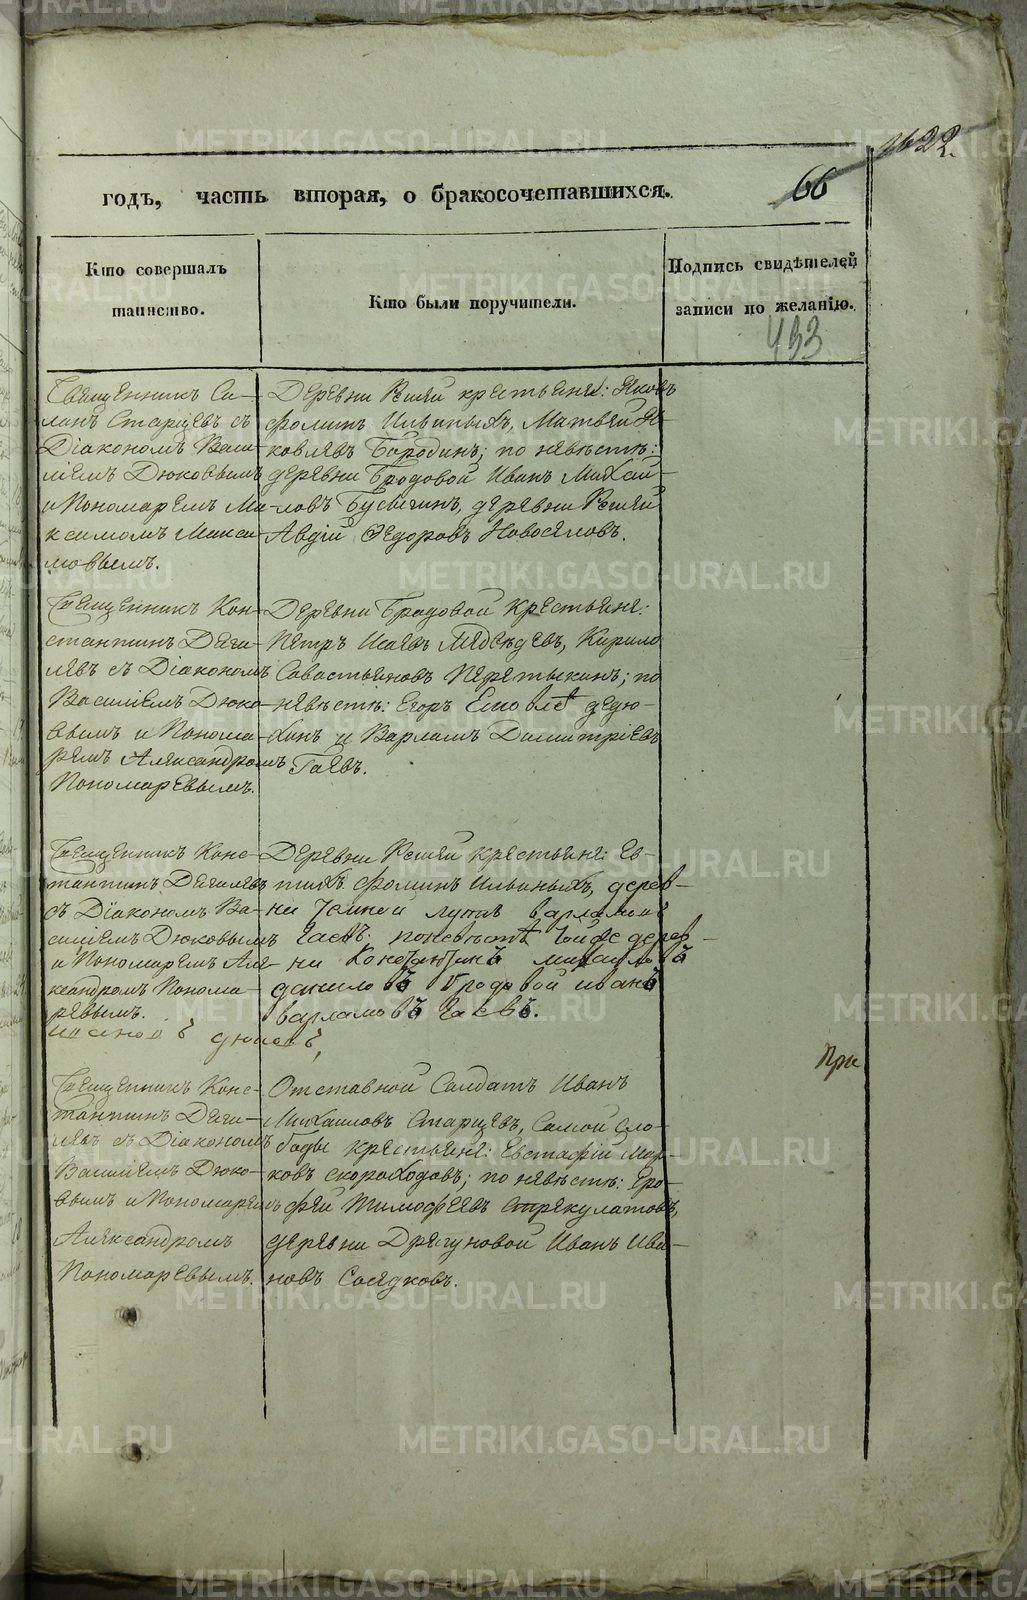 1622.
годъ, часть вторая, о бракосочетавшихся.
66
Кто совершалъ
таинство.
Кто были поручители.
Подпись свидѣтелей
записи по желанію.
433
Священникъ Си-
ланъ Старцевъ съ
Діакономъ Васи-
ліемъ Дюковымъ
и Пономаремъ Ма-
ксимомъ Макси-
мовымъ.
Деревни крестьяне: Яковъ
Фоминъ Ильиныхъ, Матвей Я-
ковлевъ Бородинъ; по невѣстѣ:
деревни Бродовой Иванъ Михай-
ловъ Бусыгинъ, деревни
Авдій Федоровъ Новоселовъ.
Священникъ Кон-
стантинъ Дяги-
левъ съ Діакономъ
Василіемъ Дюко-
вымъ и Понома-
ремъ Александромъ
Пономаревымъ.
Деревни Бродовой крестьяне:
Петръ Исаевъ Медведевъ, Кирило
Савастьяновъ Перетыкинъ; по
невѣстѣ: Егоръ Дедю-
хинъ и Варламъ Димитріевъ
Гаевъ.
Священникъ Конс-
тантинъ Дягилевъ
съ Діакономъ Ва-
силіемъ Дюковымъ
и Пономаремъ Але-
ксандромъ Понома-
ревымъ.
Деревни крестьяне: Ев-
тихъ Фоминъ Ильиныхъ, дерев-
ни Темной лупъ варламовъ
Гаевъ. поневѣстѣ дерев-
ни Констянтинъ михаиловъ
даниловъ бродовой иванъ
варламовъ Гаевъ.
Священникъ Конс-
тантинъ Дяги-
левъ съ Діакономъ
Василіемъ Дюко-
вымъ и Пономаремъ
Александромъ
Пономаревымъ.
Отставной Солдатъ Иванъ
Михаиловъ Старцевъ, Самой Сло-
боды крестьяне: Евстафій Мар-
ковъ Скороходовъ; по невѣстѣ: Еро-
фей Тимофеевъ Стрекулатовъ,
деревни Дрягуновой Иванъ Ива-
новъ Соседковъ.
При